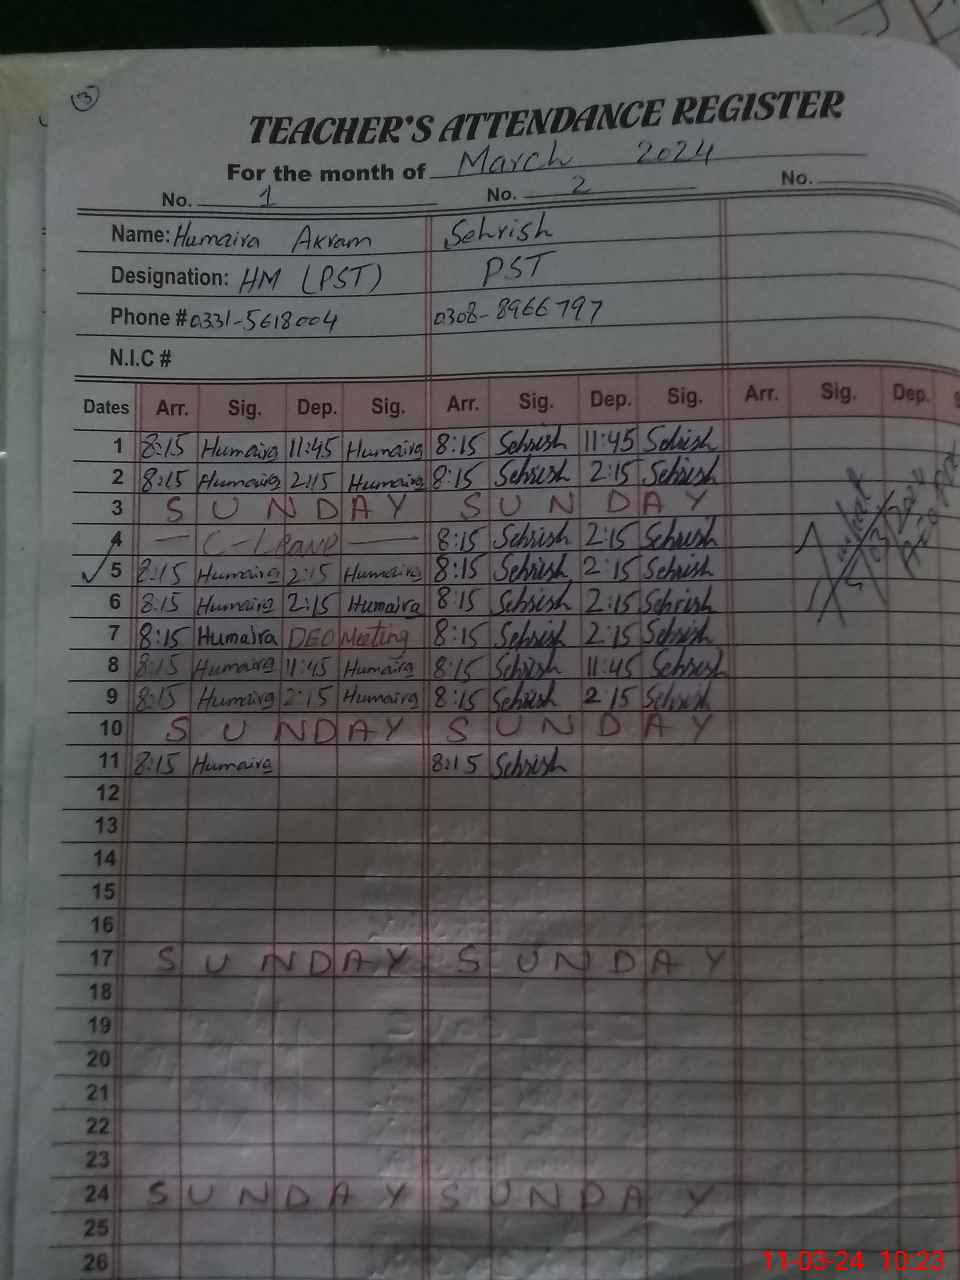 3
TEACHER'S ATTENDANCE REGISTER
For the month of March 2024
No. 1 No. 2 No.
Name: Humaira Akram Sehrish
Designation: HM (PST) PST
Phone # 0331-5618004 0308-8966797
N.I.C #
Dates Arr. Sig. Dep. Sig. Arr. Sig. Dep. Sig. Arr. Sig. Dep. S
1 8:15 Humaira 11:45 Humaira 8:15 Sehrish 11:45 Sehrish
2 8:15 Humaira 2:15 Humaira 8:15 Sehrish 2:15 Sehrish
3 SUNDAY SUNDAY
4 — C-Leave — 8:15 Sehrish 2:15 Sehrish
5 8:15 Humaira 2:15 Humaira 8:15 Sehrish 2:15 Sehrish
6 8:15 Humaira 2:15 Humaira 8:15 Sehrish 2:15 Sehrish
7 8:15 Humaira DEO Meeting 8:15 Sehrish 2:15 Sehrish
8 8:15 Humaira 11:45 Humaira 8:15 Sehrish 11:45 Sehrish
9 8:15 Humaira 2:15 Humaira 8:15 Sehrish 2:15 Sehrish
10 SUNDAY SUNDAY
11 8:15 Humaira 8:15 Sehrish
12
13
14
15
16
17 SUNDAY SUNDAY
18
19
20
21
22
23
24 SUNDAY SUNDAY
25
26
11-03-24 10:23